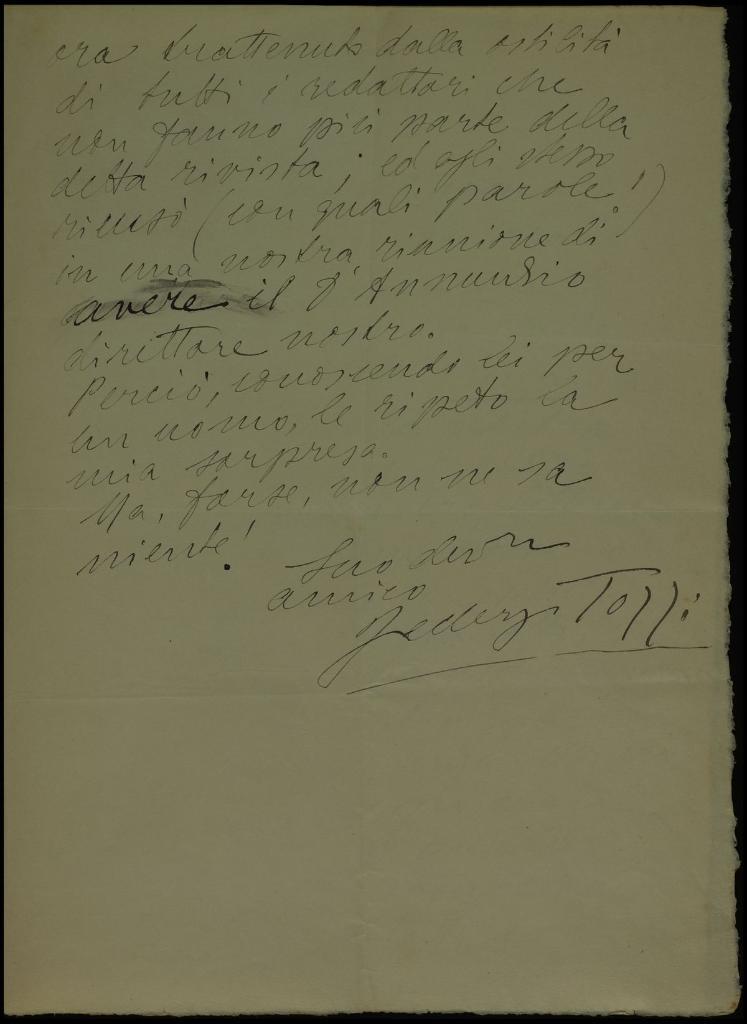 ora trattenuto dalla ostilità
di tutti i redattori che
non fanno più parte della
detta rivista; ed egli stesso
ricusò (con quali parole!)
in una nostra riunione di
avere il D'Annunzio
direttore nostro.
Perciò, conoscendo lei per
un uomo, le ripeto la
mia sorpresa.
Ma, forse, non ne sa
niente!
Suo dev
amico
Federigo Tozzi